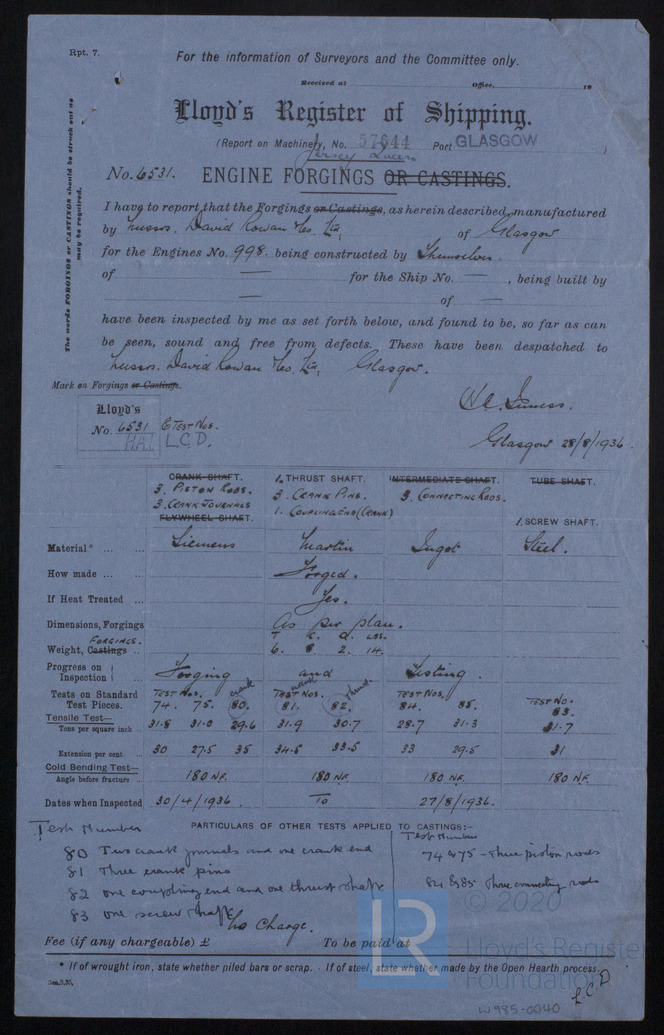 Rpt. 7.
For the information of Surveyors and the Committee only.
Received at Office, 19
Lloyd's Register of Shipping.
(Report on Machinery, No. 57644 Port GLASGOW )
Jersey Queen
No. 6531. ENGINE FORGINGS OR CASTINGS.
The words FORGINGS or CASTINGS should be struck out as may be required.
I have to report that the Forgings or Castings, as herein described, manufactured
by Messrs. David Rowan & Co. Ltd, of Glasgow
for the Engines No. 998. being constructed by Themselves.
of — for the Ship No. — , being built by
— of —
have been inspected by me as set forth below, and found to be, so far as can
be seen, sound and free from defects. These have been despatched to
Messrs. David Rowan & Co. Ltd, Glasgow.
Mark on Forgings or Castings.
Lloyd's
No. 6531 & TEST NOS.
L.C.D.
Glasgow 28/8/1936
CRANK SHAFT. 1. THRUST SHAFT. INTERMEDIATE SHAFT. TUBE SHAFT.
3. PISTON RODS. 3. CRANK PINS. 3. CONNECTING RODS.
3. CRANK JOURNALS 1. COUPLING END (CRANK)
FLYWHEEL SHAFT. 1. SCREW SHAFT.
Material* ... ... Siemens Martin Ingot Steel.
How made ... ... Forged.
If Heat Treated ... Yes.
Dimensions, Forgings As per plan.
FORGINGS. T. C. Q. LBS.
Weight, Castings .. 6. 8 2. 14.
Progress on Inspection Forging and Testing.
Tests on Standard Test Pieces. TEST NOS. crank TEST NOS. crank thrust TEST NOS. TEST NO.
74. 75. 80. 81. 82. 84. 85. 83.
Tensile Test—
Tons per square inch .. 31.8 31.0 29.6 31.9 30.7 28.7 31.3 31.7
Extension per cent. .. 30 27.5 35 34.5 33.5 33 29.5 31
Cold Bending Test—
Angle before fracture .. 180 NF. 180 NF. 180 NF. 180 NF.
Dates when Inspected 30/4/1936 To 27/8/1936.
PARTICULARS OF OTHER TESTS APPLIED TO CASTINGS:—
Test Number
80 Two crank journals and one crank end
81 Three crank pins
82 one coupling end and one thrust shaft
83 one screw shaft
Test Number
74 & 75 - three piston rods
84 & 85 three connecting rods
No Charge.
Fee (if any chargeable) £ To be paid at
* If of wrought iron, state whether piled bars or scrap. - If of steel, state whether made by the Open Hearth process.
L.C.D
W985-0040
LR
© 2020
Lloyd's Register
Foundation